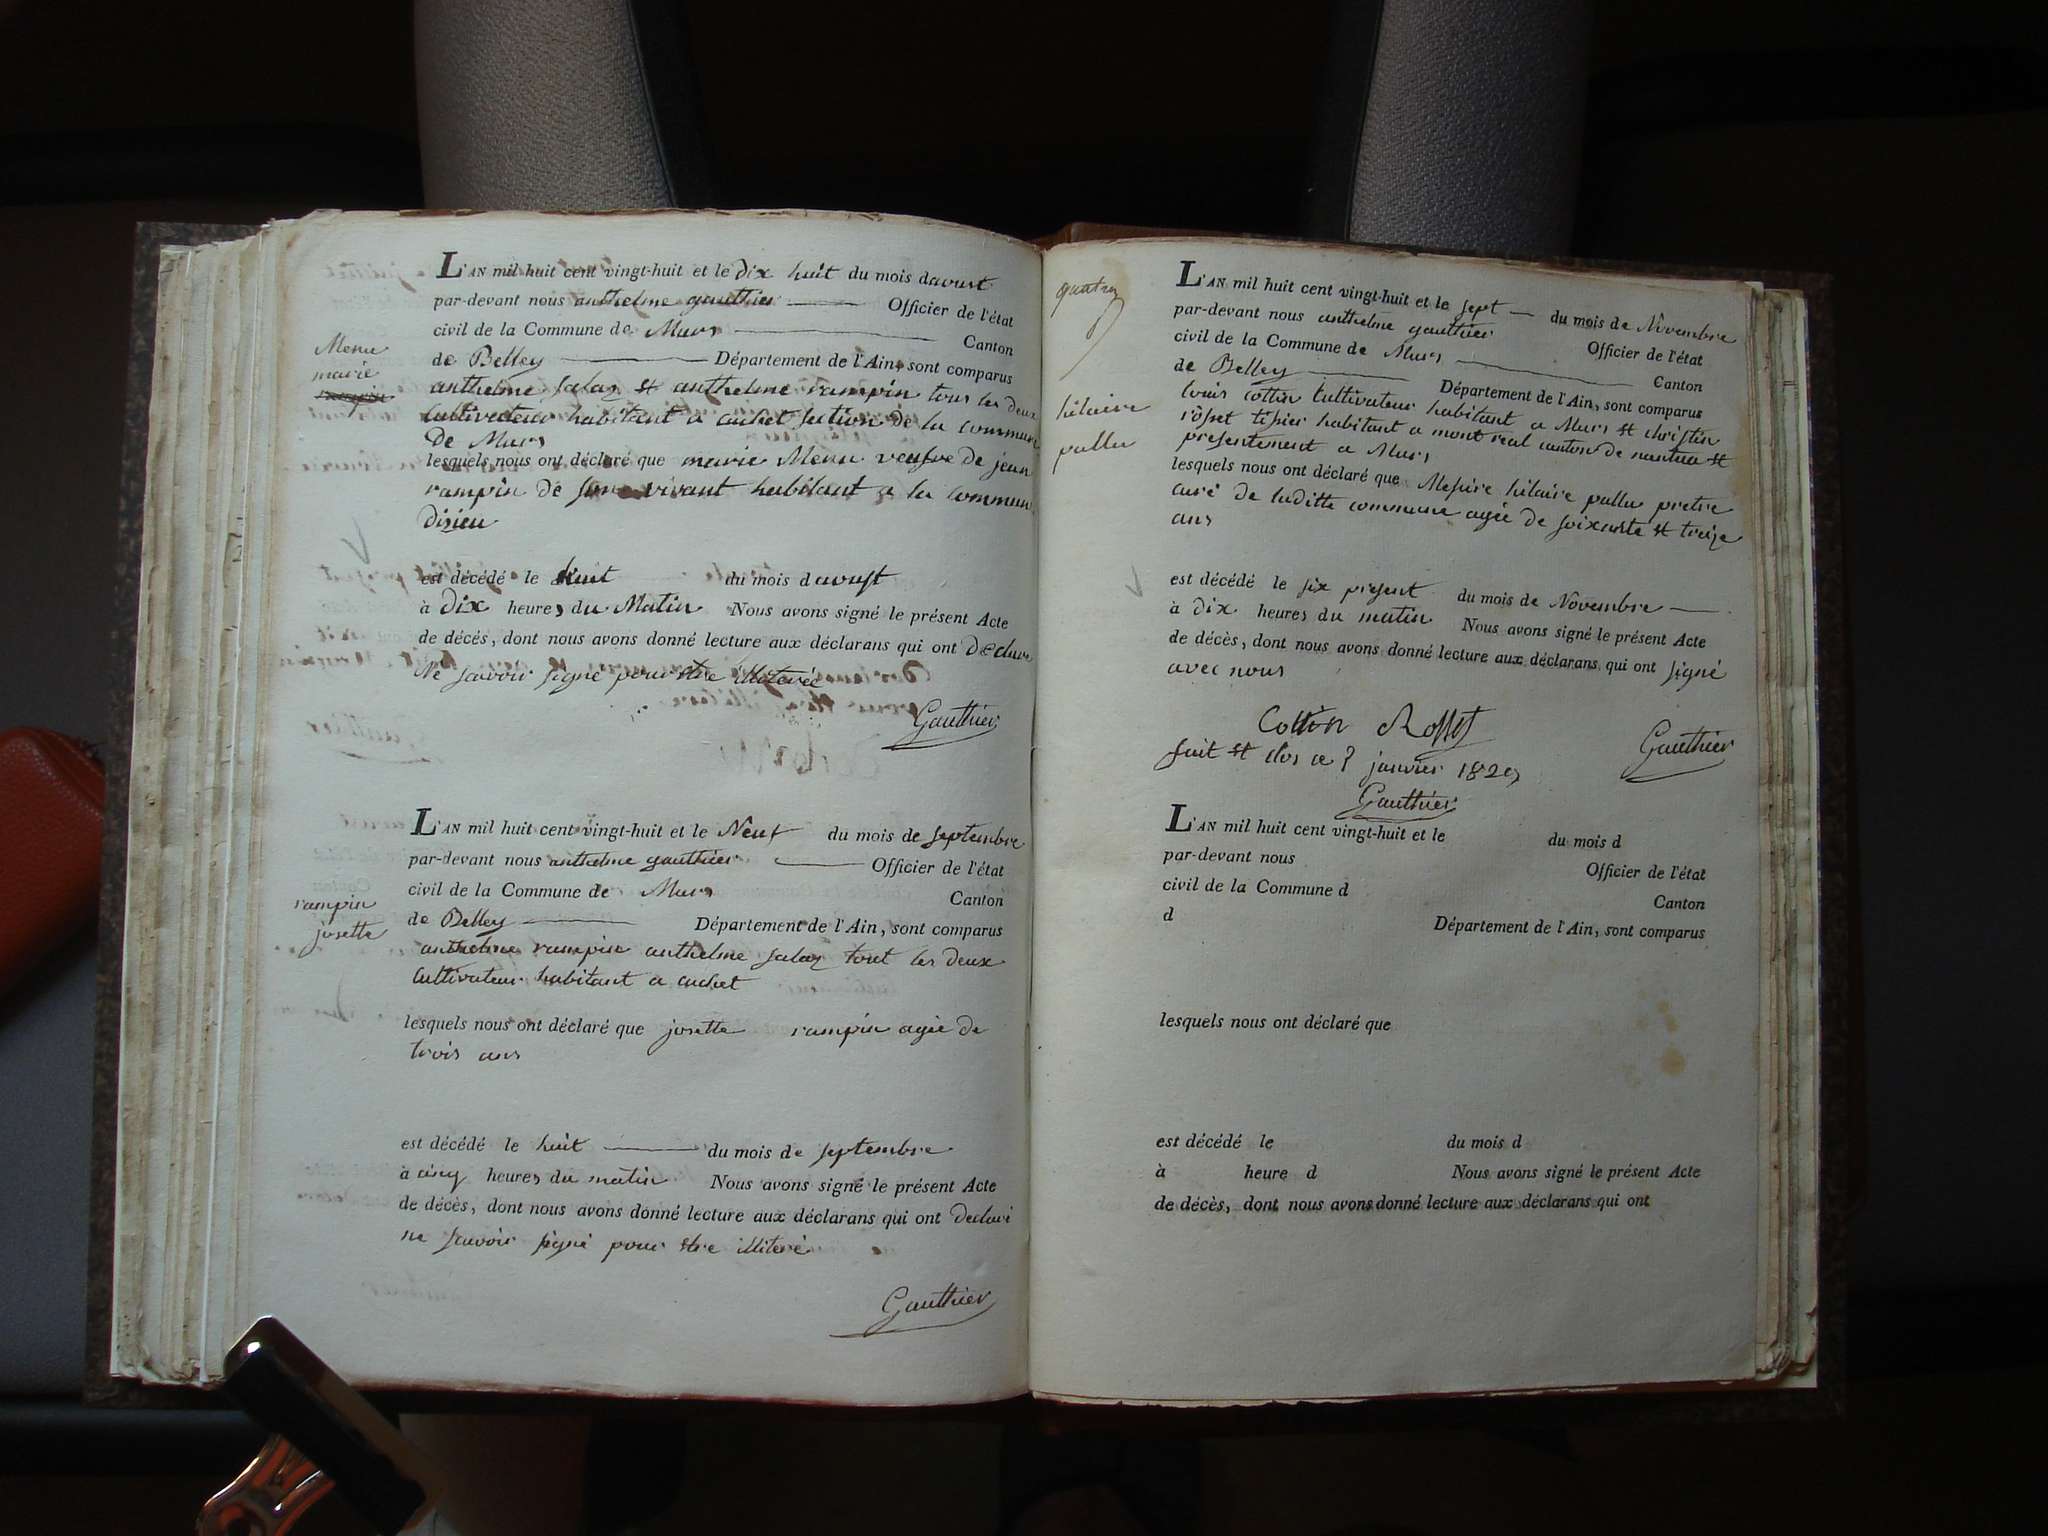 L'AN mil huit cent vingt-huit et le dix huit du mois davust
par-devant nous anthelme gauthier Officier de l'état
civil de la Commune de Murs Canton
de Belley Département de l'Ain, sont comparus
anthelme salaz et anthelme rampin tous les deux
Cultivateur habitant a cuchet section de la commune
de Murs
lesquels nous ont déclaré que marie Menu veufve de jean
rampin de son vivant habitant a la commune
disieu
est décédé le huit du mois d avust
à dix heures du Matin Nous avons signé le présent Acte
de décès, dont nous avons donné lecture aux déclarans qui ont declare
Ne savoir signé pour etre illiteréé
Gauthier
Menu
marie
rampin
L'AN mil huit cent vingt-huit et le Neuf du mois de septembre
par-devant nous anthelme gauthier Officier de l'état
civil de la Commune de Murs Canton
de Belley Département de l'Ain, sont comparus
anthelme rampin anthelme salaz tout les deux
Cultivateur habitant a cuchet
lesquels nous ont déclaré que josette rampin agée de
trois ans
est décédé le huit du mois de septembre
à cinq heures du matin Nous avons signé le présent Acte
de décès, dont nous avons donné lecture aux déclarans qui ont declaré
ne savoir signé pour etre illiteré
Gauthier
rampin
josette
L'AN mil huit cent vingt-huit et le sept du mois de Novembre
par-devant nous anthelme gauthier Officier de l'état
civil de la Commune de Murs Canton
de Belley Département de l'Ain, sont comparus
louis cottin Cultivateur habitant a Murs et christin
rosset tissier habitant a mont real canton de nantua et
presentement a Murs
lesquels nous ont déclaré que Messire hilaire pallu pretre
curé de laditte commune agée de soixante et treize
ans
est décédé le six present du mois de Novembre
à dix heures du matin Nous avons signé le présent Acte
de décès, dont nous avons donné lecture aux déclarans qui ont signé
avec nous
Cottin Rosset Gauthier
fait et clos ce janvier 1829
Gauthier
hilaire
pallu
L'AN mil huit cent vingt-huit et le du mois d
par-devant nous Officier de l'état
civil de la Commune d Canton
d Département de l'Ain, sont comparus
lesquels nous ont déclaré que
est décédé le du mois d
à heure d Nous avons signé le présent Acte
de décès, dont nous avons donné lecture aux déclarans qui ont